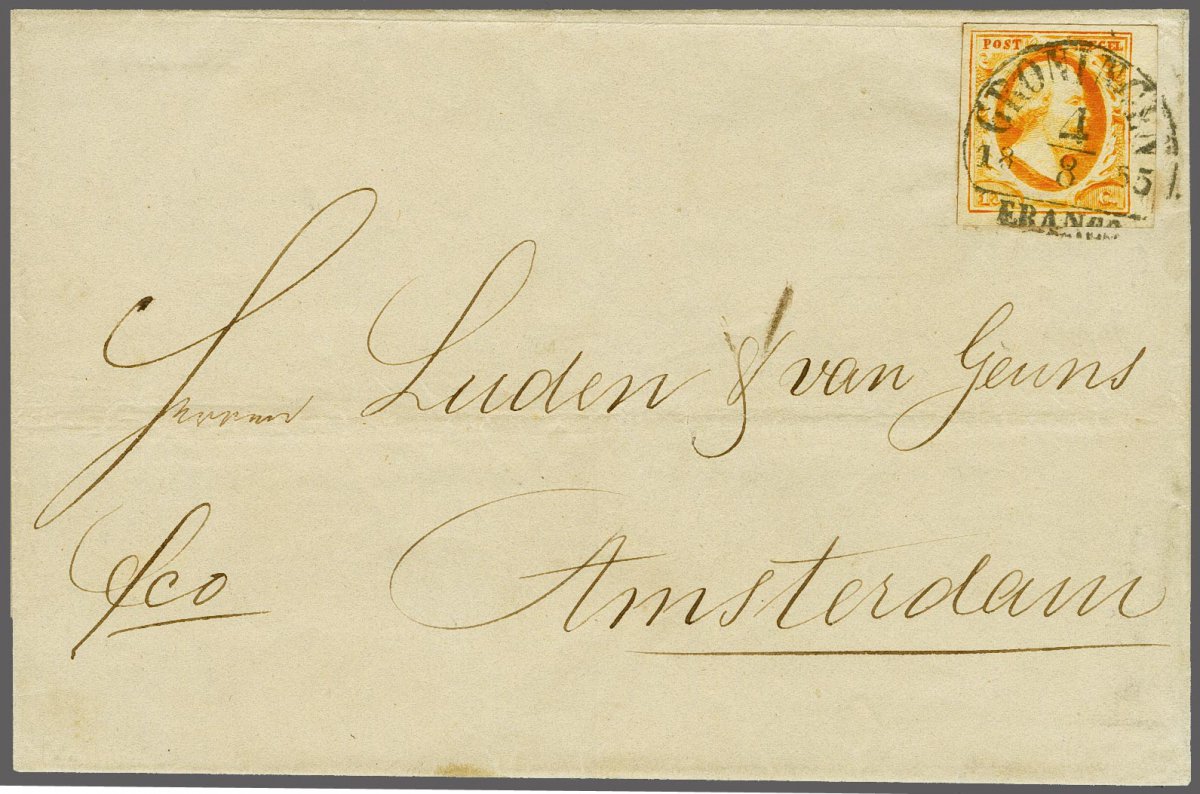 POST
GRONINGEN
4
18 8 55
15 C.
FRANCO
Herren Luden & van Geuns
fco Amsterdam